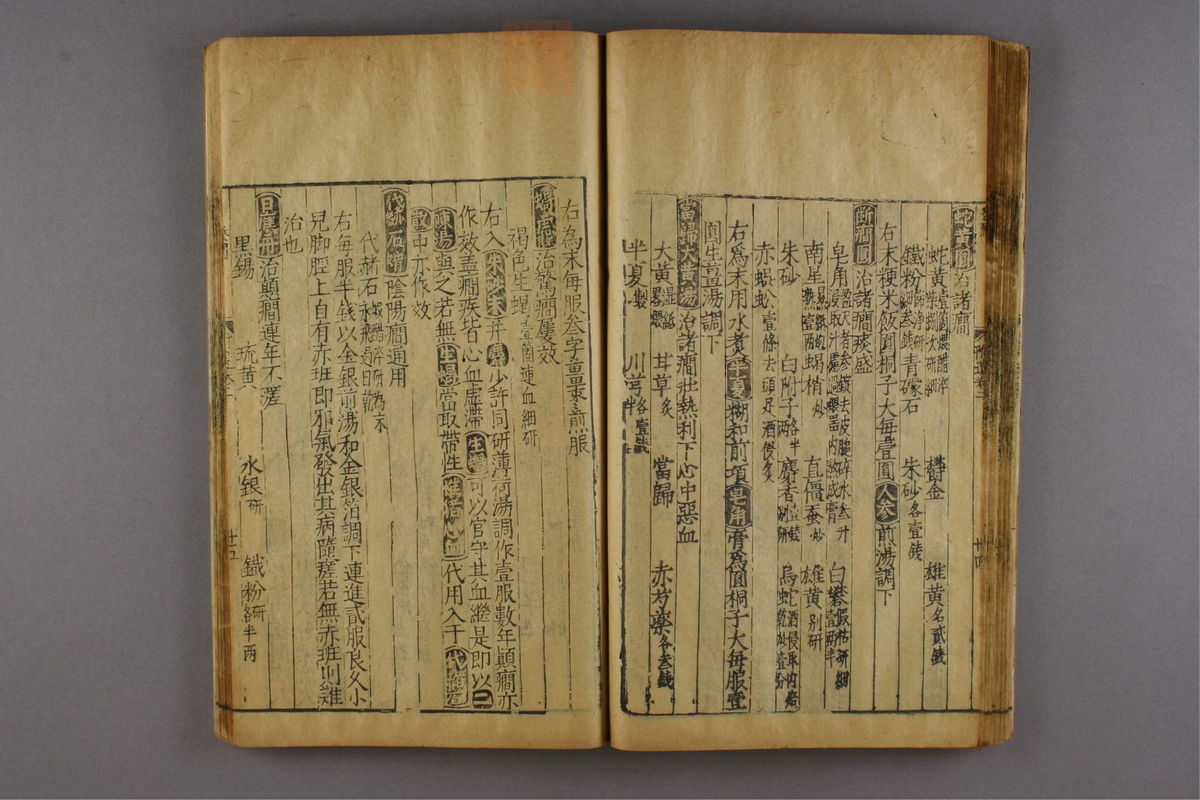 蛇黃圓治諸癎
蛇黃 鬱金 雄黃各貳錢
鐵粉 青礞石 朱砂各壹錢
右末粳米飯圓桐子大每壹圓人參煎湯調下
斷癎圓治諸癎瘥盛
皂角 白礬
南星 蝎梢炒 直僵蚕炒 雄黃別研
朱砂 白附子 麝香 烏蛇
赤蜈蚣壹條去頭足酒浸炙
右爲末用水煮半夏糊和前項皂角膏爲圓桐子大每服壹
圓生薑湯調下
當歸大黃湯治諸癎壯熱利下心中惡血
大黃 甘草炙 當歸 赤芍藥各叁錢
半夏製 川芎各壹錢半
右為末每服叁字薑棗煎服
治驚癎屢效
褐色生蝎壹箇連血細研
右入朱砂末并麝少許同研薄荷湯調作壹服數年顚癎亦
作效盖癎疾皆心血虛滯生蝎可以官守其血繼是即以
湯與之若無生蝎當取帶生猪心血代用入千代赭石
散中亦作效
代赭石散陰陽癎通用
代赭石
右每服半錢以金銀煎湯和金銀箔調下連進貳服良久小
兒脚脛上自有赤班即邪氣發出其病隨瘥若無赤班則難
治也
日應丹治顚癎連年不瘥
黑錫 硫黃 水銀研 鐵粉研各半兩
十四
廿五